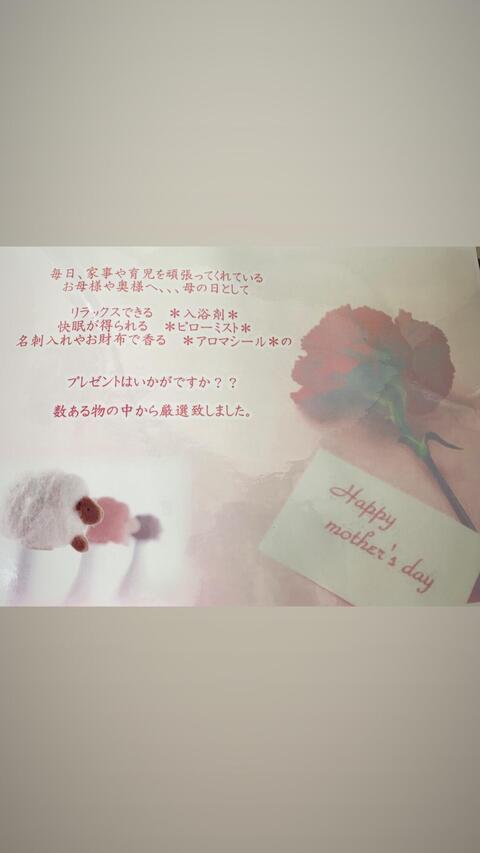 毎日、家事や育児を頑張ってくれている
お母様や奥様へ、、、母の日として
リラックスできる ＊入浴剤＊
快眠が得られる ＊ピローミスト＊
名刺入れやお財布で香る ＊アロマシール＊の
プレゼントはいかがですか？？
数ある物の中から厳選致しました。
Happy
mother's day